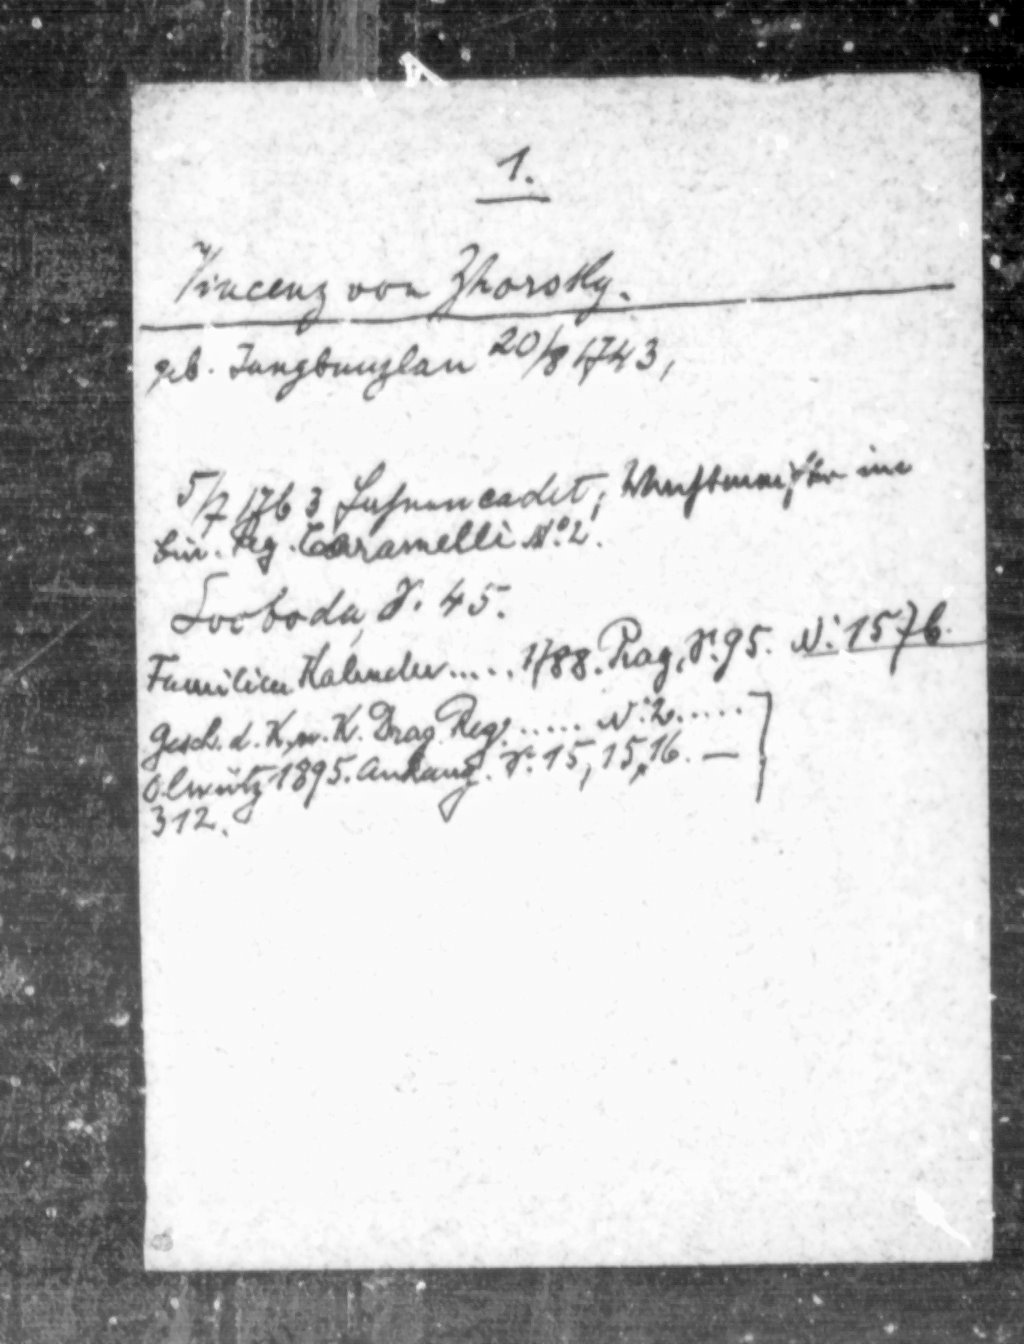 1.
Vincenz von Zhorsky.
geb. Jungbunzlau 20/8 1743,
5/7 1763 Fahnencadet, Wachtmeister im
Cür. Reg. Caramelli No. 2.
Svoboda, S. 45.
Familien Kalender ..... 1788. Prag, S. 95. N: 1576.
Gesch. d. K. u. K. Drag. Reg. ..... N: 2 .....
Olmütz 1895. Anhang. S. 15, 15, 16. —
312.